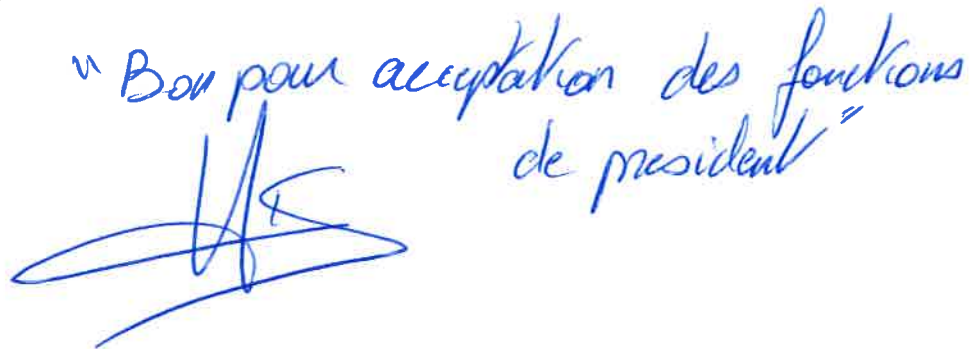 "Bon pour acceptation des fonctions
de president"